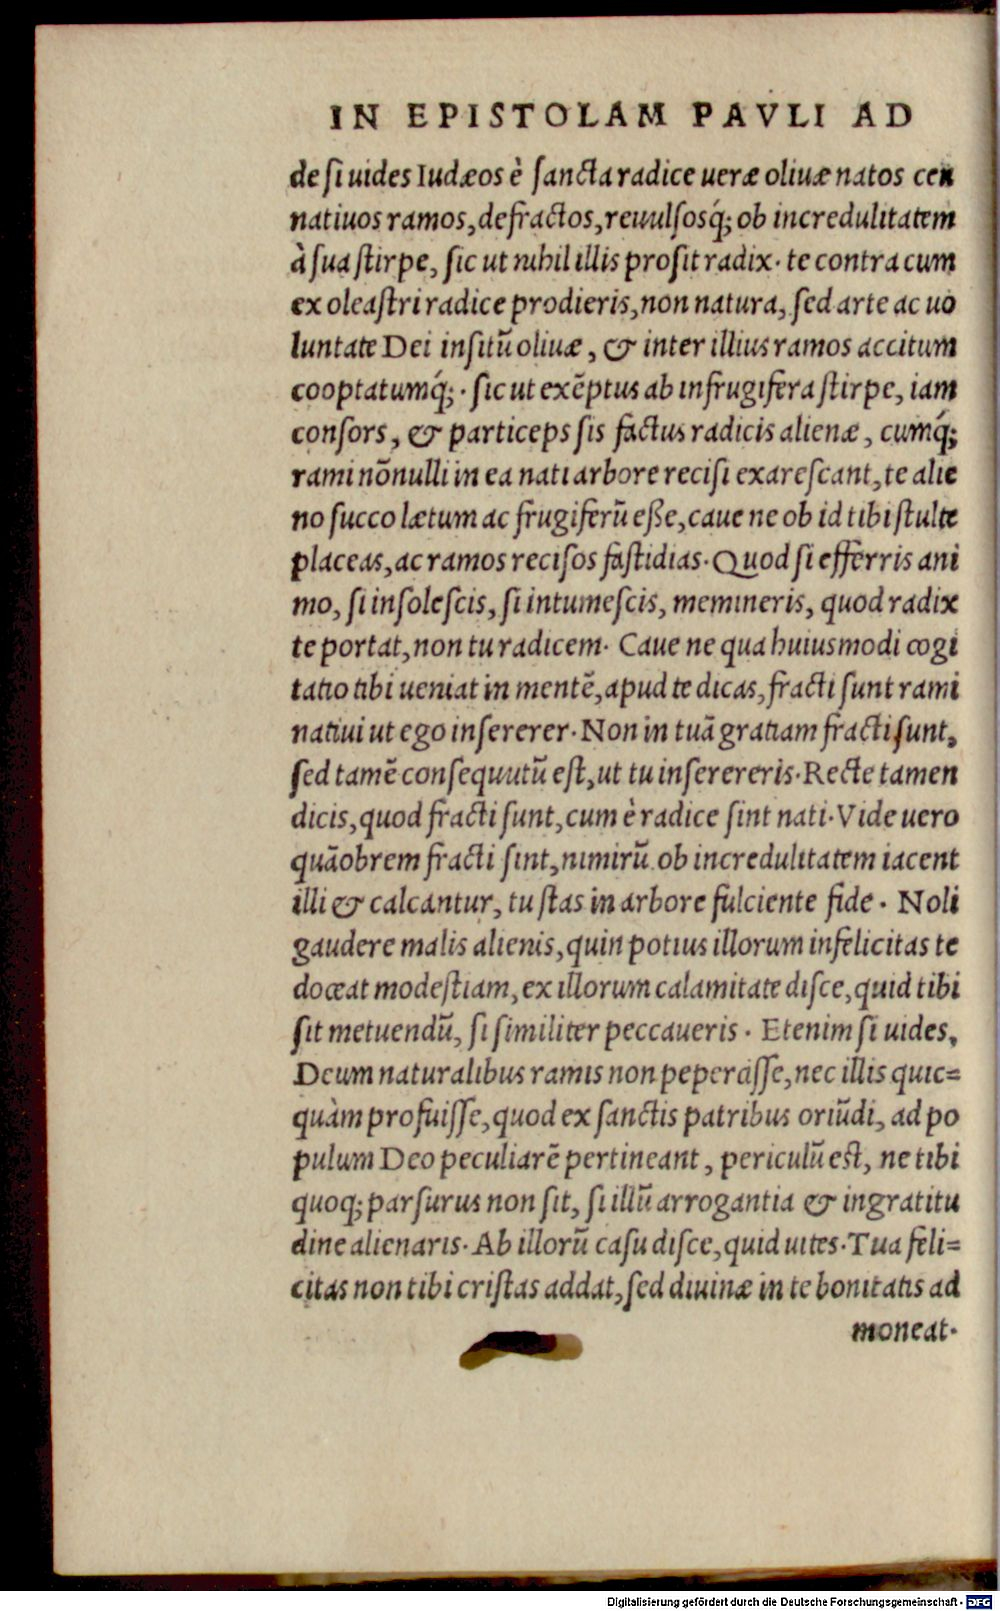 IN EPISTOLAM PAVLI AD
de si uides Iudæos è sancta radice ueræ oliuæ natos ceu
natiuos ramos, defractos, reuulsosq́; ob incredulitatem
à sua stirpe, sic ut nihil illis prosit radix. te contra cum
ex oleastri radice prodieris, non natura, sed arte ac uo
luntate Dei insitũ oliuæ, & inter illius ramos accitum
cooptatumq́;. sic ut exẽptus ab infrugifera stirpe, iam
consors, & particeps sis factus radicis alienæ, cumq́;
rami nõnulli in ea nati arbore recisi exarescant, te alie
no succo lætum ac frugiferũ eße, caue ne ob id tibi stulte
placeas, ac ramos recisos fastidias. Quod si efferris ani
mo, si insolescis, si intumescis, memineris, quod radix
te portat, non tu radicem. Caue ne qua huiusmodi cogi
tatio tibi ueniat in mentẽ, apud te dicas, fracti sunt rami
natiui ut ego insererer. Non in tuã gratiam fracti sunt,
sed tamẽ consequutũ est, ut tu inserereris. Recte tamen
dicis, quod fracti sunt, cum è radice sint nati. Vide uero
quãobrem fracti sint, nimirũ ob incredulitatem iacent
illi & calcantur, tu stas in arbore fulciente fide. Noli
gaudere malis alienis, quin potius illorum infelicitas te
doceat modestiam, ex illorum calamitate disce, quid tibi
sit metuendũ, si similiter peccaueris. Etenim si uides,
Deum naturalibus ramis non pepercisse, nec illis quic=
quàm profuisse, quod ex sanctis patribus oriũdi, ad po
pulum Deo peculiarẽ pertineant, periculũ est, ne tibi
quoq; parsurus non sit, si illũ arrogantia & ingratitu
dine alienaris. Ab illorũ casu disce, quid uites. Tua feli=
citas non tibi cristas addat, sed diuinæ in te bonitatis ad
moneat.
Digitalisierung gefördert durch die Deutsche Forschungsgemeinschaft - DFG